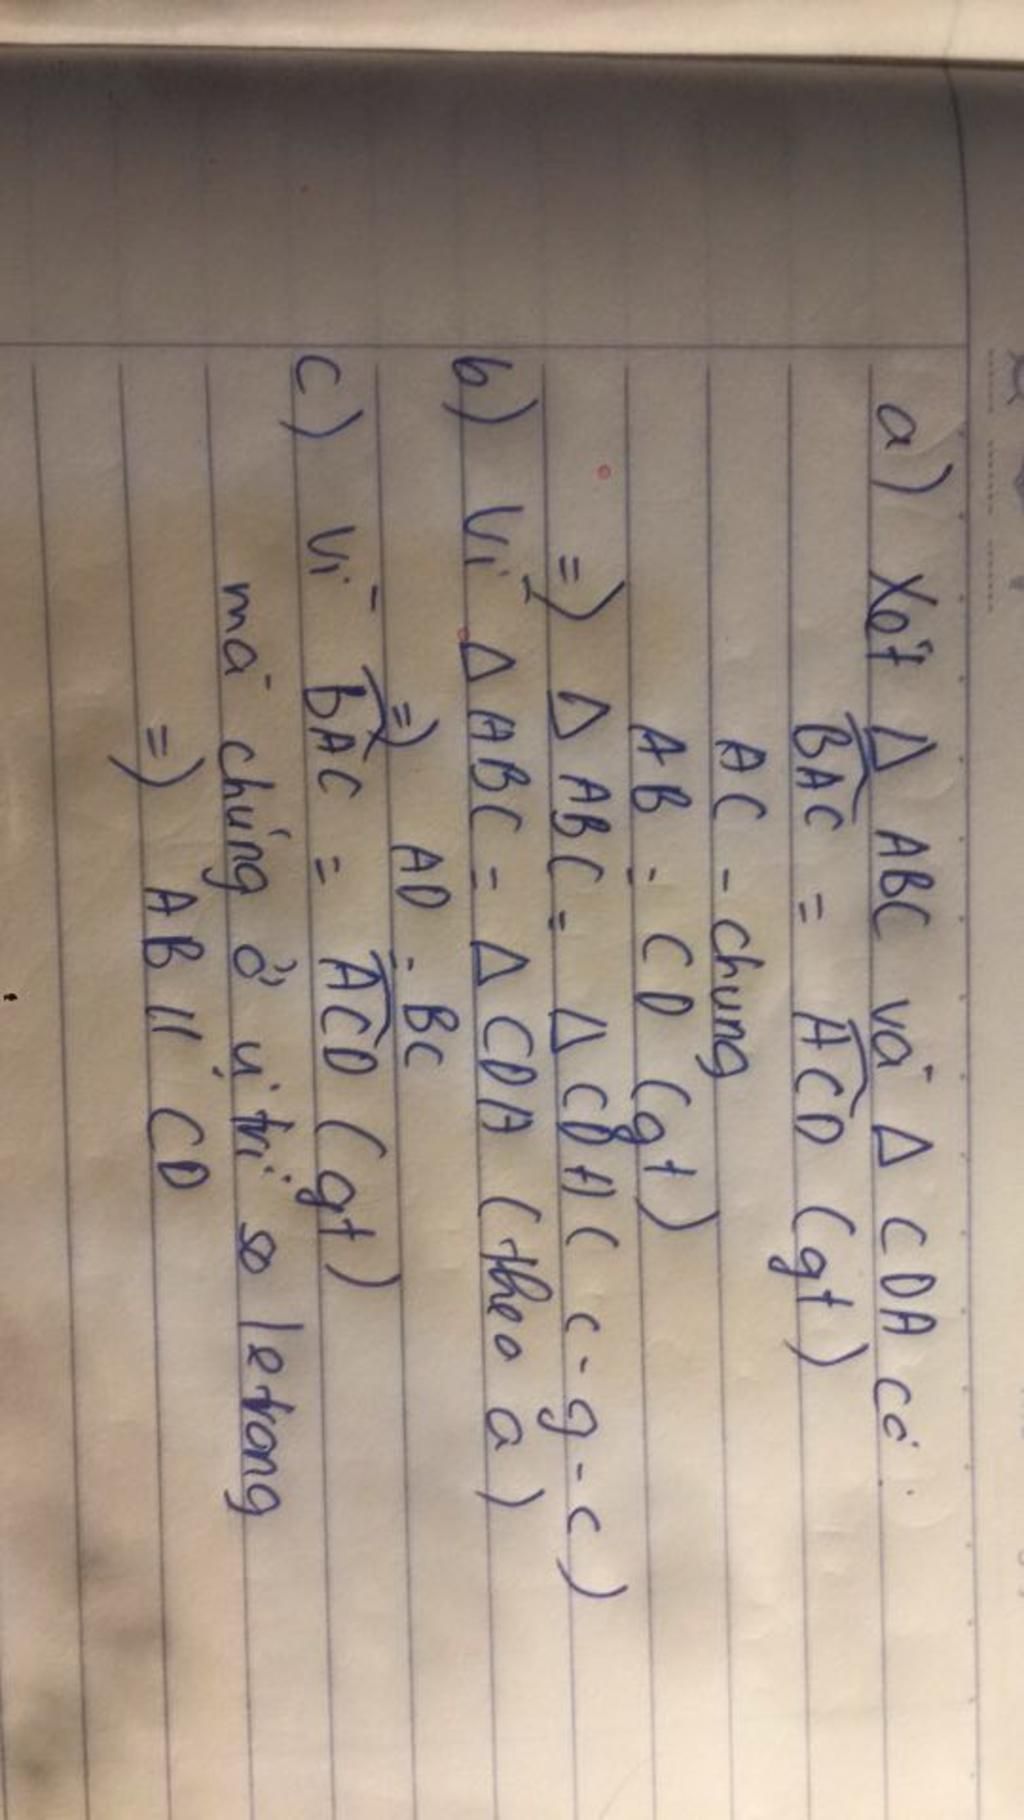 a) Xét Δ ABC và Δ CDA có:
BAC = ACD (gt)
AC - chung
AB = CD (gt)
=) Δ ABC = Δ CDA ( c - g - c )
b) Vì Δ ABC = Δ CDA ( theo a )
=) AD = BC
c) Vì BAC = ACD ( gt )
mà chúng ở vị trí so le trong
=) AB // CD